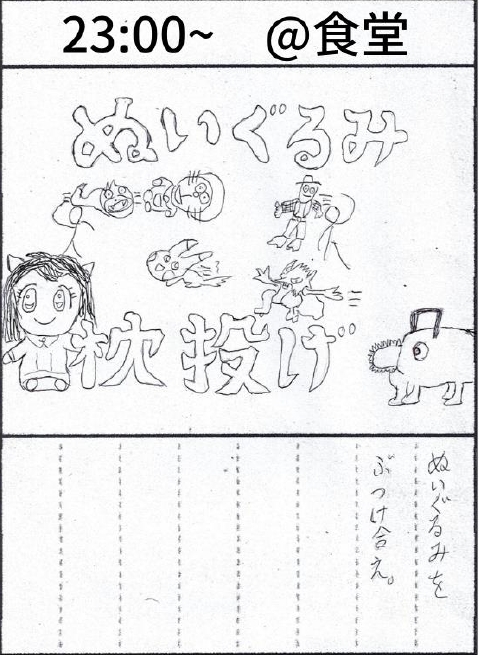 23:00~ @食堂
ぬいぐるみ
枕投げ
ぬいぐるみを
ぶつけ合え。